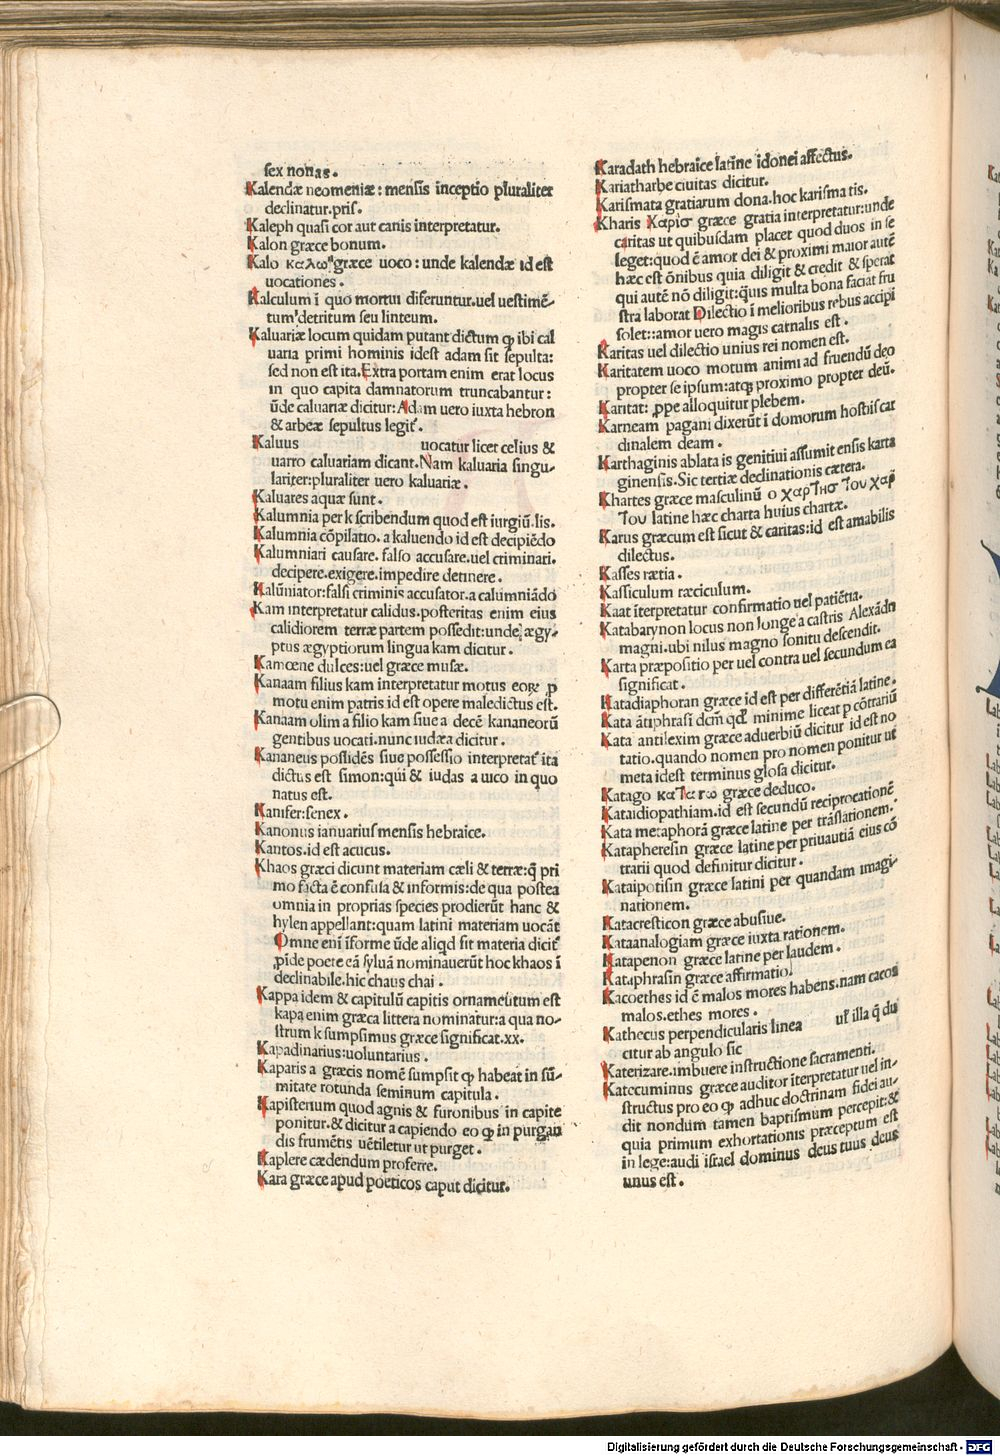 sex nonas.
Kalendæ neomeniæ: mensis inceptio pluraliter
declinatur. pris.
Kaleph quasi cor aut canis interpretatur.
Kalon græce bonum.
Kalo καλω græce uoco: unde kalendæ id est
uocationes.
Kalculum ī quo mortui diferuntur. uel uestimē-
tum detritum seu linteum.
Kaluariæ locum quidam putant dictum ꝙ ibi cal
uaria primi hominis idest adam sit sepulta:
sed non est ita. Extra portam enim erat locus
in quo capita damnatorum truncabantur:
ūde caluariæ dicitur: Adam uero iuxta hebron
& arbeæ sepultus legiť.
Kaluus uocatur licet celius &
uarro caluariam dicant. Nam kaluaria singu-
lariter: pluraliter uero kaluariæ.
Kaluares aquæ sunt.
Kalumnia per k scribendum quod est iurgiū. lis.
Kalumnia cōpilatio. a kaluendo id est decipiēdo
Kalumniari causare. falso accusare. uel criminari.
decipere. exigere. impedire detinere.
Kalūniator: falsi criminis accusator. a calumniādo
Kam interpretatur calidus. posteritas enim eius
calidiorem terræ partem possedit: unde ægy-
ptus ægyptiorum lingua kam dicitur.
Kamœne dulces: uel græce musæ.
Kanaam filius kam interpretatur motus eoꝝ ꝓ
motu enim patris id est opere maledictus est.
Kanaam olim a filio kam siue a decē kananeorū
gentibus uocati. nunc iudæa dicitur.
Kananeus poslidēs siue possessio interpretať ita
dictus est simon: qui & iudas a uico in quo
natus est.
Kanifer: senex.
Kanonus ianuarius mensis hebraice.
Kantos. id est acucus.
Khaos græci dicunt materiam cæli & terræ: q̄ pri
mo facta ē confusa & informis: de qua postea
omnia in proprias species prodierūt hanc &
hylen appellant: quam latini materiam uocāt
Omne eni īforme ūde aliqd sit materia diciť
ꝓide poete eā syluā nominauerūt hoc khaos ī
declinabile. hic chaus chai.
Kappa idem & capitulū capitis ornamentum est
kapa enim græca littera nominatur: a qua no-
strum k sumpsimus græce significat. xx.
Kapadinarius: uoluntarius.
Kaparis a græcis nomē sumpsit ꝙ habeat in sū-
mitate rotunda seminum capitula.
Kapisterium quod agnis & furonibus in capite
ponitur. & dicitur a capiendo eo ꝙ in purgan
dis frumētis uētiletur ut purget.
Kaplere cædendum proferre.
Kara græce apud poeticos caput dicitur.
Karadath hebraice latine idonei affectus.
Kariatharbe ciuitas dicitur.
Karismata gratiarum dona. hoc karisma tis.
Kharis Χαρισ græce gratia interpretatur: unde
caritas ut quibusdam placet quod duos in se
leget: quod ē amor dei & proximi maior autē
hæc est ōnibus quia diligit & credit & sperat
qui autē nō diligit: q̄uis multa bona faciat fru
stra laborat Dilectio ī melioribus rebus accipi
solet:: amor uero magis carnalis est.
Karitas uel dilectio unius rei nomen est.
Karitatem uoco motum animi ad fruendū deo
propter se ipsum: atqȝ proximo propter deū.
Karitat: ꝓpe alloquitur plebem.
Karneam pagani dixerūt ī domorum hostiis car
dinalem deam.
Karthaginis ablata is genitiui assumit ensis karta
ginensis. Sic tertiæ declinationis cætera.
Khartes græce masculinū ο χαρτησ του χαρ
του latine hæc charta huius chartæ.
Karus græcum est sicut & caritas: id est amabilis
dilectus.
Kasses rætia.
Kassiculum ræciculum.
Kaat īterpretatur confirmatio uel patiētia.
Katabarynon locus non longe a castris Alexādri
magni. ubi nilus magno sonitu descendit.
Karta præpositio per uel contra uel secundum ea
significat.
Katadiaphoran græce id est per differētiā latine.
Kata ātiphrasi dcm̄ qđ minime liceat p cōtrariū
Kata antilexim græce aduerbiū dicitur id est no
tatio. quando nomen pro nomen ponitur ut
meta idest terminus glosa dicitur.
Katago καταγω græce deduco.
Kataidiopathiam. id est secundū reciprocationē
Kata metaphorā græce latine per trāslationem.
Katapheresin græce latine per priuautiā eius cō
trarii quod definitur dicitur.
Kataipotisin græce latini per quandam imagi-
nationem.
Katacresticon græce abusiue.
Kataanalogiam græce iuxta rationem.
Katapenon græce latine per laudem.
Kataphrasin græce affirmatio.
Kacoethes id ē malos mores habens. nam cacos
malos. ethes mores.
Kathecus perpendicularis linea uľ illa q̄ du
citur ab angulo sic
Katerizare. imbuere instructione sacramenti.
Katecuminus græce auditor īterpretatur uel in-
structus pro eo ꝙ adhuc doctrinam fidei au-
dit nondum tamen baptismum percepit: &
quia primum exhortationis præceptum est
in lege: audi israel dominus deus tuus deus
unus est.
Digitalisierung gefördert durch die Deutsche Forschungsgemeinschaft - DFG